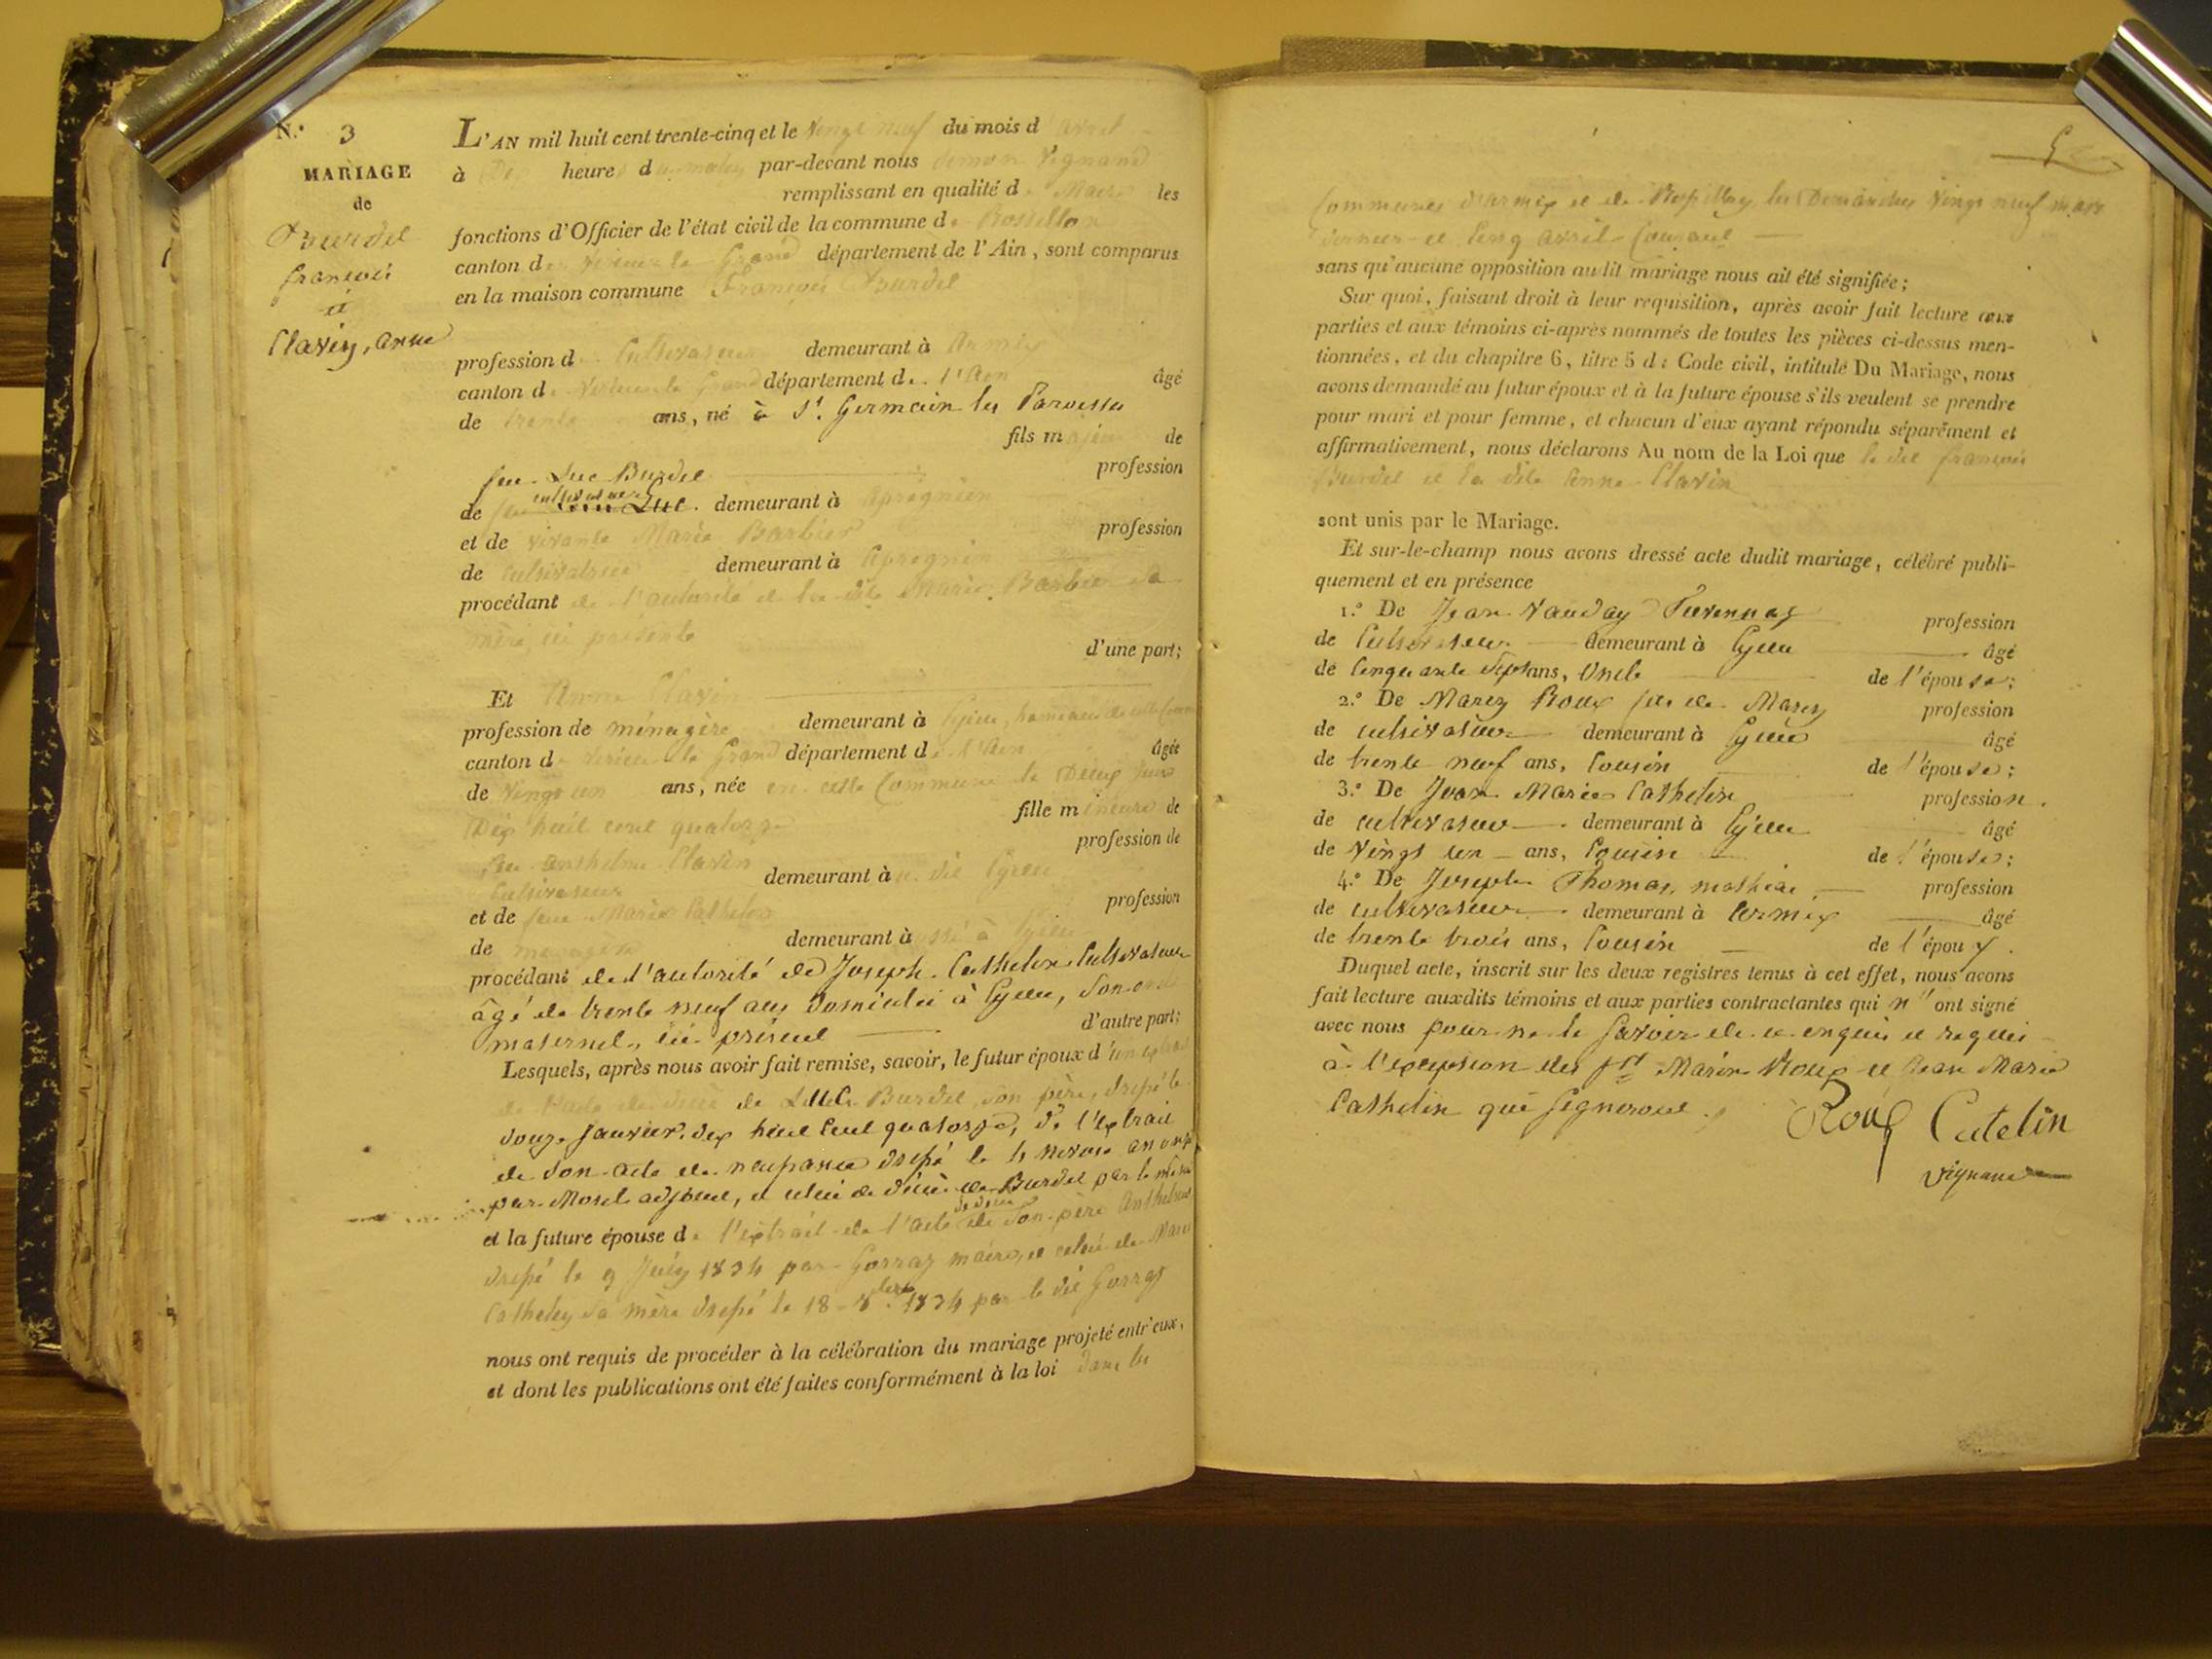 N.° 3
MARIAGE
de
Burdel
françois
et
Clavin, anne
L'AN mil huit cent trente-cinq et le vingt neuf du mois d'avril
à Dix heures du matin par-devant nous Vignand
remplissant en qualité de Maire les
fonctions d'Officier de l'état civil de la commune de Rossillon
canton de Virieu le Grand département de l'Ain, sont comparus
en la maison commune François Burdel
profession de Cultivateur demeurant à Armix
canton de Virieu le Grand département de l'Ain âgé
de trente ans, né à St. Germain les Paroisses
fils majeur de
feu Luc Burdel profession
de cultivateur demeurant à apregnien
et de vivante Marie Barbier profession
de cultivatrice demeurant à Apregnin
procédant de l'autorité de la dite Marie Barbier sa
mère, ici présente
d'une part;
Et Anne Clavin
profession de ménagère demeurant à Cyzeu, hameau de cette Commune
canton de Virieu le Grand département de l'Ain âgée
de vingt un ans, née en cette Commune le Deux
Dix huit cent quatorze fille mineure de
feu anthelme Clavin profession de
Cultivateur demeurant à
et de feue Marie Cathelin profession
de menagère demeurant à
procédant de l'autorité de Joseph Cathelin Cultivateur
âgé de trente neuf ans domicilié à Cyzeu, son oncle
maternel, ici présent d'autre part;
Lesquels, après nous avoir fait remise, savoir, le futur époux d'un extrait
de l'acte de décès de Luc Burdel, son père, dressé le
douze janvier dix huit cent quatorze, de l'extrait
de son acte de naissance dressé le 4 nivose an onze
par Morel adjoint, et celui de décès de Burdel par le même
et la future épouse de l'extrait de l'acte de décès de son père Anthelme
dressé le 9 1834 par Gorraz maire, et celui de Marie
Cathelin sa mère dressé le 18 1834 par le dit Gorraz
nous ont requis de procéder à la célébration du mariage projeté entr'eux,
et dont les publications ont été faites conformément à la loi dans les
5
Communes d'armix et de Rossillon les Dimanches vingt neuf mars
dernier et cinq avril Courant
sans qu'aucune opposition audit mariage nous ait été signifiée;
Sur quoi, faisant droit à leur requisition, après avoir fait lecture aux
parties et aux témoins ci-après nommés de toutes les pièces ci-dessus men-
tionnées, et du chapitre 6, titre 5 du Code civil, intitulé Du Mariage, nous
avons demandé au futur époux et à la future épouse s'ils veulent se prendre
pour mari et pour femme, et chacun d'eux ayant répondu séparément et
affirmativement, nous déclarons Au nom de la Loi que le dit françois
Burdel et la dite Anne Clavin
sont unis par le Mariage.
Et sur-le-champ nous avons dressé acte dudit mariage, célébré publi-
quement et en présence
1.° De Jean profession
de Cultivateur demeurant à Cyzeu âgé
de Cinquante Sept ans, Oncle de l'épouse;
2.° De Marin Roux fils de Marin profession
de cultivateur demeurant à Cyzeu âgé
de trente neuf ans, Cousin de l'épouse;
3.° De Jean Marie Cathelin profession.
de cultivateur demeurant à Cyzeu âgé
de vingt un ans, Cousin de l'épouse;
4.° De Joseph Thomas mathieu profession
de cultivateur demeurant à Armix âgé
de trente trois ans, Cousin de l'époux.
Duquel acte, inscrit sur les deux registres tenus à cet effet, nous avons
fait lecture auxdits témoins et aux parties contractantes qui n'ont signé
avec nous pour ne le savoir de ce enquis et requis
à l'exception des Marin Roux et Jean Marie
Cathelin qui signeront.
Roux Catelin
Vignand